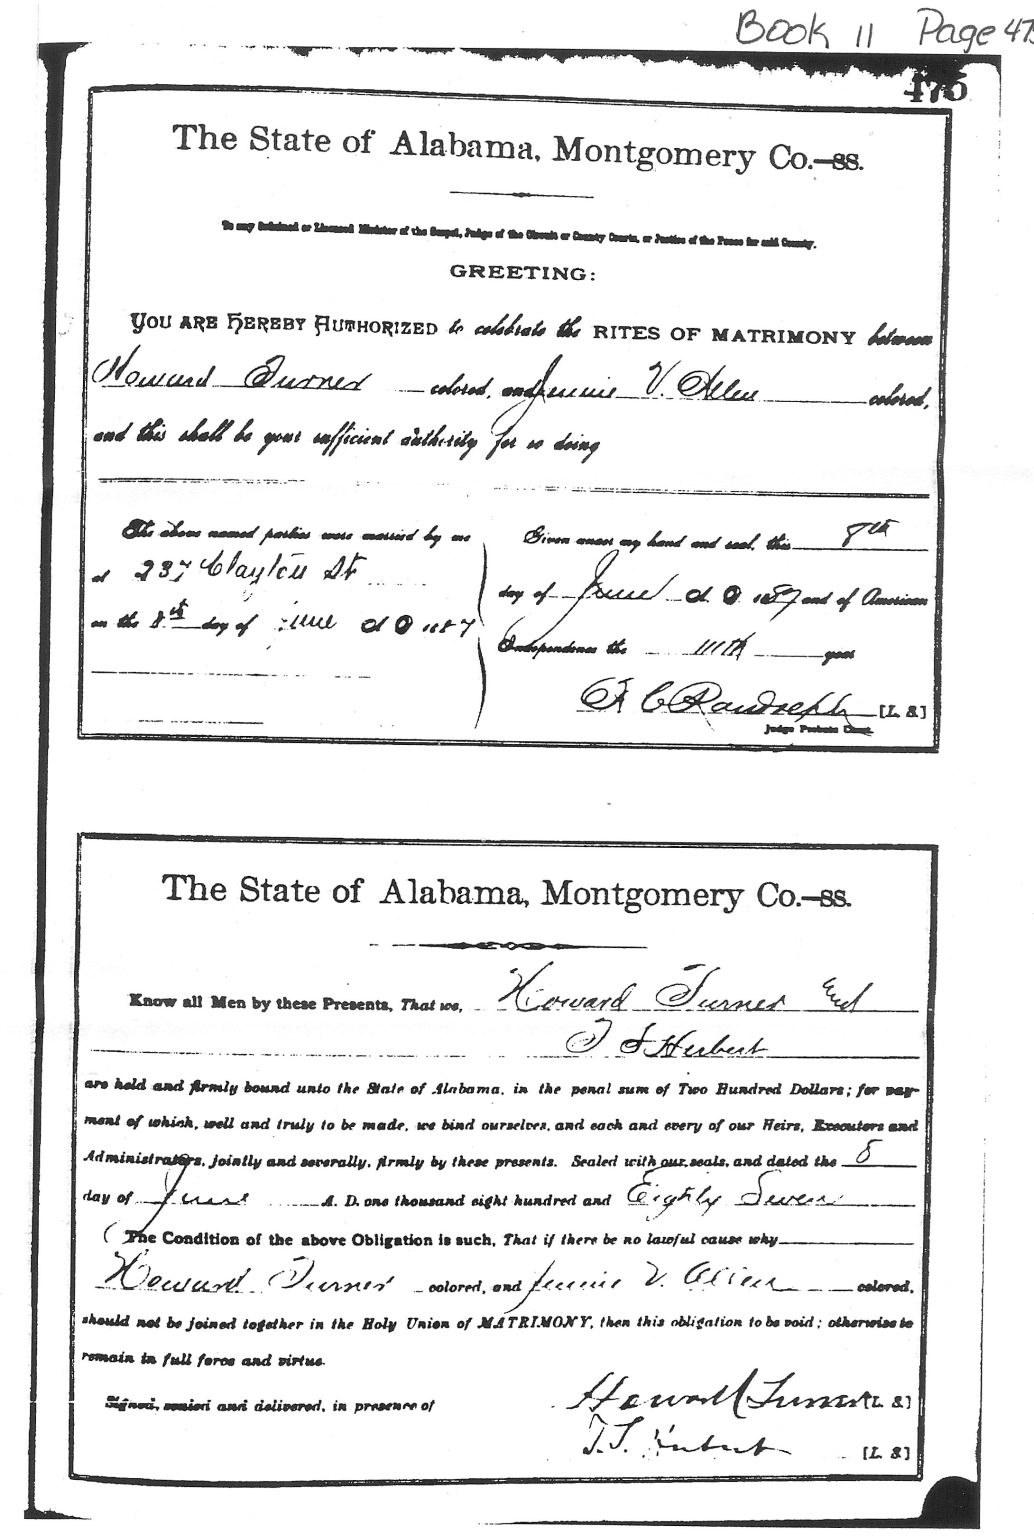 Book 11 Page 475
475
The State of Alabama, Montgomery Co.—ss.
To any Ordained or Licensed Minister of the Gospel, Judge of the Circuit or County Courts, or Justice of the Peace for said County.
GREETING:
YOU ARE HEREBY AUTHORIZED to celebrate the RITES OF MATRIMONY between
Howard Turner colored, and Jennie V. Allen colored,
and this shall be your sufficient authority for so doing
The above named parties were married by me
at 237 Clayton St
on the 8th day of June A D 1887
Given under my hand and seal, this 8th
day of June A. D. 1887 and of American
Independence the 111th year
F C Randolph [L. S.]
Judge Probate Court.
The State of Alabama, Montgomery Co.—ss.
Know all Men by these Presents, That we, Howard Turner and
T S Herbert
are held and firmly bound unto the State of Alabama, in the penal sum of Two Hundred Dollars; for pay-
ment of which, well and truly to be made, we bind ourselves, and each and every of our Heirs, Executors and
Administrators, jointly and severally, firmly by these presents. Sealed with our seals, and dated the 8
day of June A. D. one thousand eight hundred and Eighty Seven
The Condition of the above Obligation is such, That if there be no lawful cause why
Howard Turner colored, and Jennie V. Allen colored,
should not be joined together in the Holy Union of MATRIMONY, then this obligation to be void; otherwise to
remain in full force and virtue.
Signed, sealed and delivered, in presence of
Howard Turner [L. S.]
T. S. Herbert [L. S.]